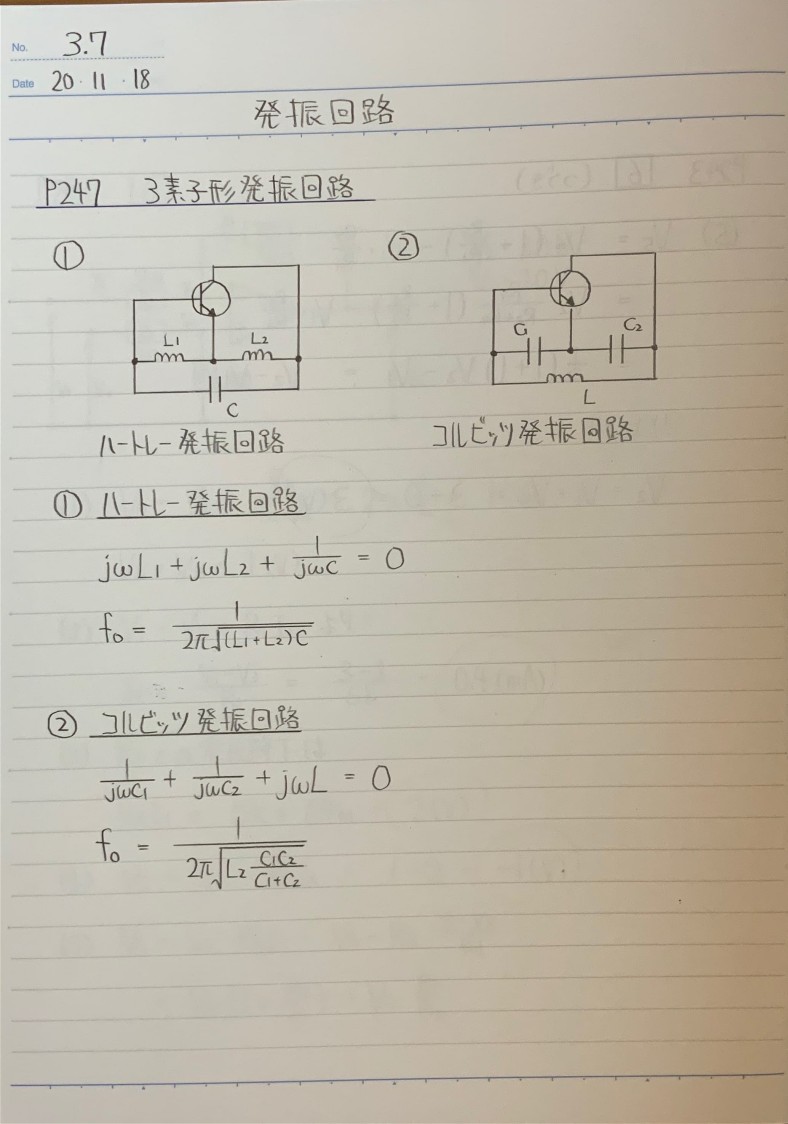 No. 3.7
Date 20・11・18
発振回路
P247 3素子形発振回路
① ②
L1 L2 C
C1 C2 L
ハートレー発振回路 コルビッツ発振回路
① ハートレー発振回路
jωL1 + jωL2 + 1/jωC = 0
f0 = 1/2π√(L1+L2)C
② コルビッツ発振回路
1/jωC1 + 1/jωC2 + jωL = 0
f0 = 1/2π√L2 C1C2/C1+C2